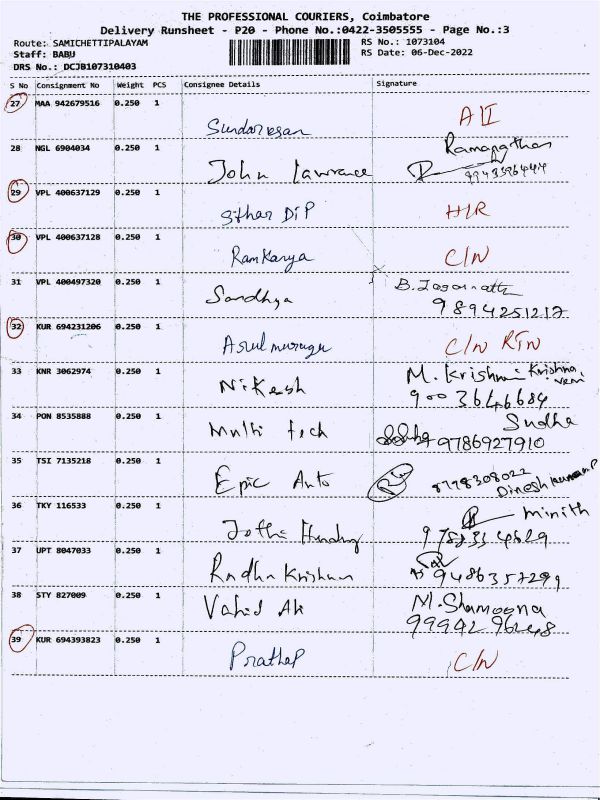 THE PROFESSIONAL COURIERS, Coimbatore
Delivery Runsheet - P20 - Phone No.:0422-3505555 - Page No.:3
Route: SAMICHETTIPALAYAM
Staff: BABU
DRS No.: DCJB107310403
RS No.: 1073104
RS Date: 06-Dec-2022
S No Consignment No Weight PCS Consignee Details Signature
27 MAA 942679516 0.250 1 Sundaresan
28 NGL 6904034 0.250 1 John Lawrance Ramanathan
29 VPL 400637129 0.250 1 Sithar DiP
30 VPL 400637128 0.250 1 RamKanya C/N
31 VPL 400497320 0.250 1 Sandhya B. Jaganath
9894251217
32 KUR 694231206 0.250 1 Arulmurugu C/N RTN
33 KNR 3062974 0.250 1 Nikesh M. Krishna
9003646684
34 PON 8535888 0.250 1 Multi tech Sudha
9786927910
35 TSI 7135218 0.250 1 Epic Auto 8778308022
Dinesh kumar P
36 TKY 116533 0.250 1 Jothi minith
37 UPT 8047033 0.250 1 Radha Krishnan 9486357299
38 STY 827009 0.250 1 Vahid Ali M. Shamoona
9994296248
39 KUR 694393823 0.250 1 Prathap C/N